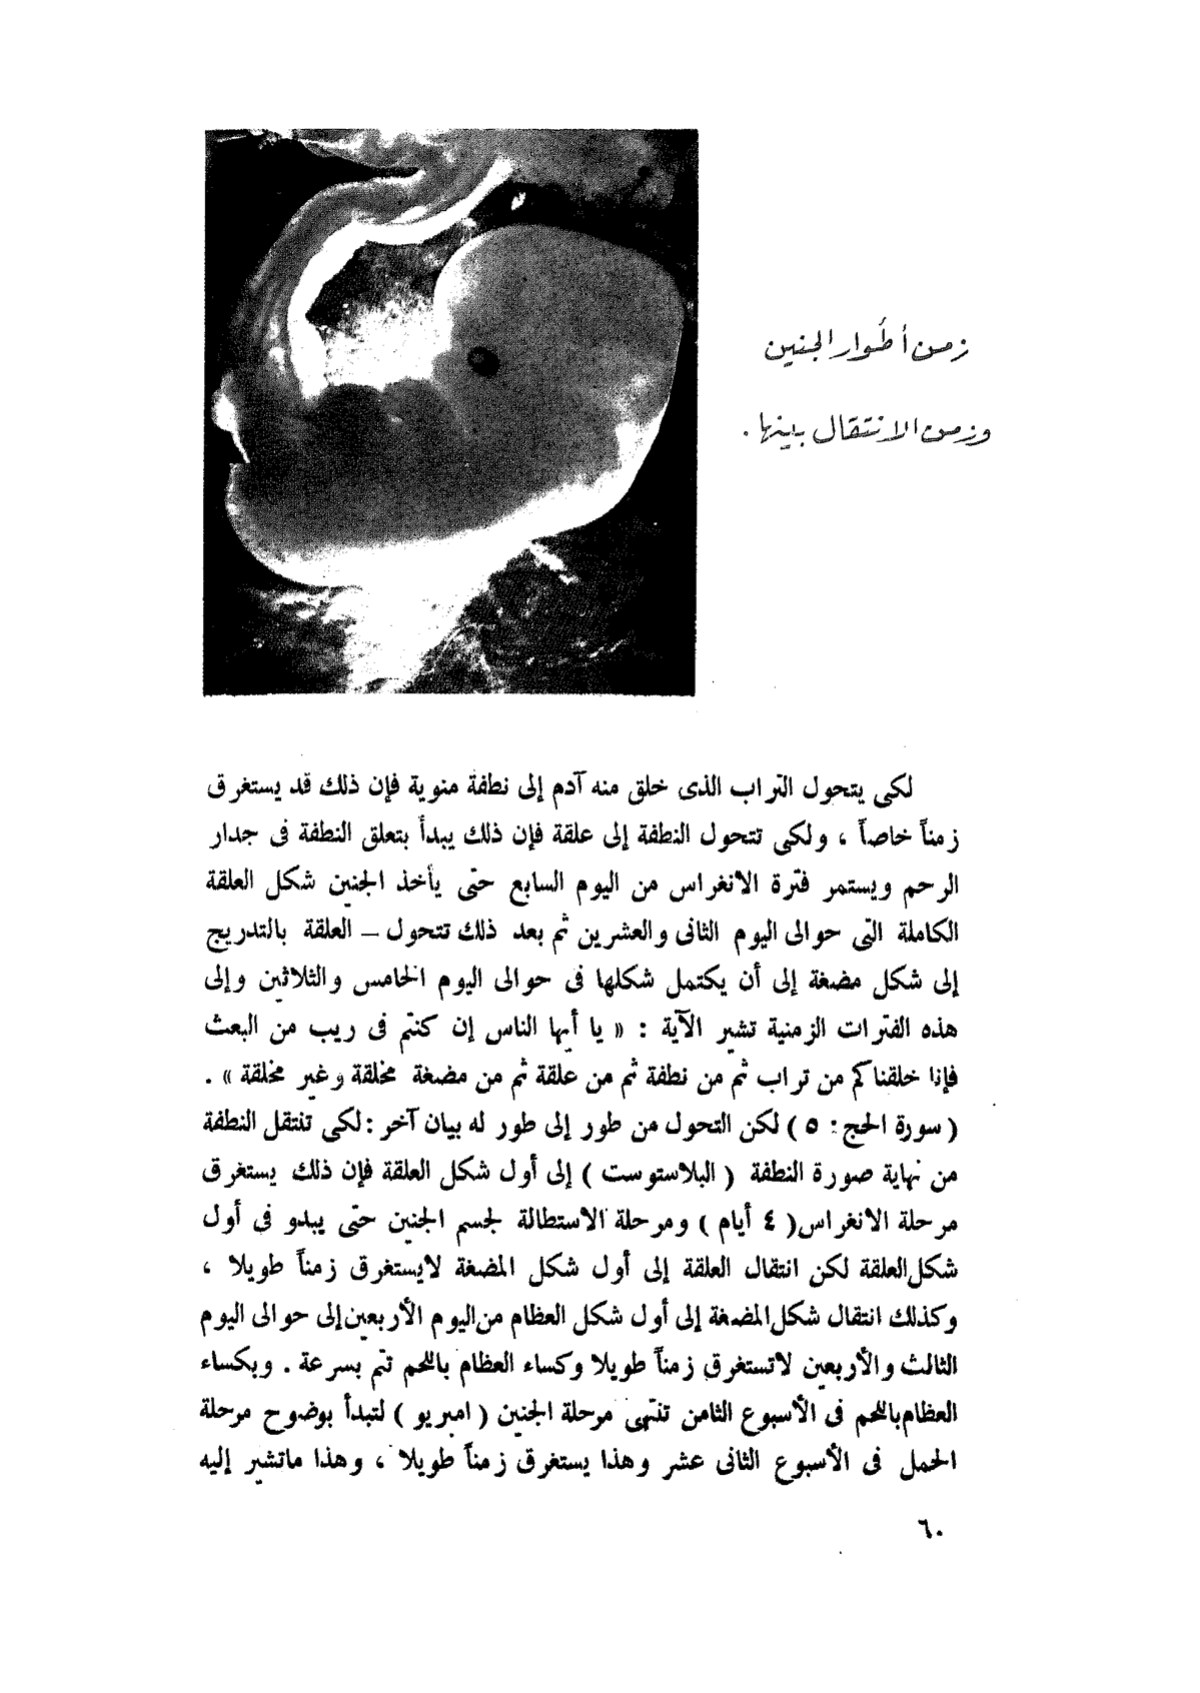 زمن أطوار الجنين
وزمن الانتقال بينها .
لكى يتحول التراب الذى خلق منه آدم إلى نطفة منوية فإن ذلك قد يستغرق
زمناً خاصاً ، ولكى تتحول النطفة إلى علقة فإن ذلك يبدأ بتعلق النطفة فى جدار
الرحم ويستمر فترة الانغراس من اليوم السابع حتى يأخذ الجنين شكل العلقة
الكاملة التى حوالى اليوم الثانى والعشرين ثم بعد ذلك تتحول – العلقة بالتدريج
إلى شكل مضغة إلى أن يكتمل شكلها فى حوالى اليوم الخامس والثلاثين وإلى
هذه الفترات الزمنية تشير الآية : « يا أيها الناس إن كنتم فى ريب من البعث
فإنا خلقناكم من تراب ثم من نطفة ثم من علقة ثم من مضغة مخلقة وغير مخلقة » .
( سورة الحج : ٥ ) لكن التحول من طور إلى طور له بيان آخر : لكى تنتقل النطفة
من نهاية صورة النطفة ( البلاستوست ) إلى أول شكل العلقة فإن ذلك يستغرق
مرحلة الانغراس ( ٤ أيام ) ومرحلة الاستطالة لجسم الجنين حتى يبدو فى أول
شكل العلقة لكن انتقال العلقة إلى أول شكل المضغة لايستغرق زمناً طويلا ،
وكذلك انتقال شكل المضغة إلى أول شكل العظام من اليوم الأربعين إلى حوالى اليوم
الثالث والأربعين لاتستغرق زمناً طويلا وكساء العظام باللحم تتم بسرعة . وبكساء
العظام باللحم فى الأسبوع الثامن تنتهى مرحلة الجنين ( امبريو ) لتبدأ بوضوح مرحلة
الحمل فى الأسبوع الثانى عشر وهذا يستغرق زمناً طويلا ، وهذا ماتشير إليه
٦٠